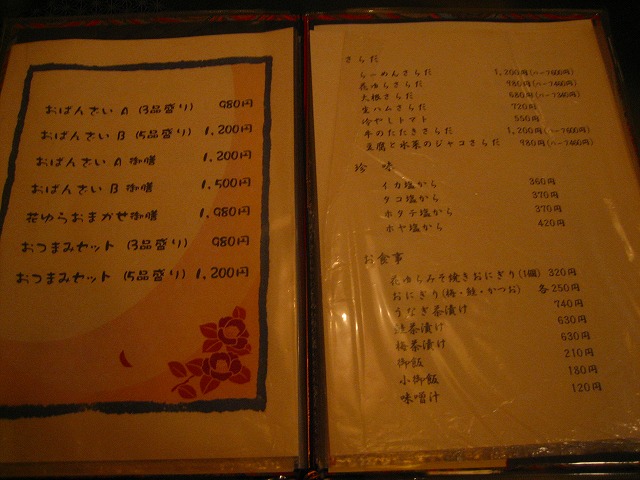 おばんざい A (3品盛り) 980円
おばんざい B (5品盛り) 1,200円
おばんざい A 御膳 1,200円
おばんざい B 御膳 1,500円
花ゆらおまかせ御膳 1,980円
おつまみセット (3品盛り) 980円
おつまみセット (5品盛り) 1,200円
さらだ
らーめんさらだ 1,200円(ハーフ600円)
花ゆらさらだ 980円(ハーフ460円)
大根さらだ 680円(ハーフ340円)
生ハムさらだ 720円
冷やしトマト 550円
牛のたたきさらだ 1,200円(ハーフ600円)
豆腐と水菜のジャコさらだ 980円(ハーフ460円)
珍味
イカ塩から 360円
タコ塩から 370円
ホタテ塩から 370円
ホヤ塩から 420円
お食事
花ゆらみそ焼きおにぎり(1個) 320円
おにぎり(梅・鮭・かつお) 各250円
うなぎ茶漬け 740円
鮭茶漬け 630円
梅茶漬け 630円
御飯 210円
小御飯 180円
味噌汁 120円